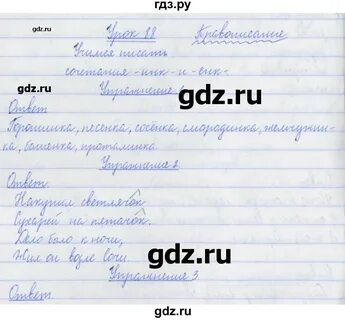 гдз.ру
Урок 88 Правописание
Учимся писать
сочетания -инк- и -енк-
Упражнение
gdz.ru
Ответ
Горошинка, песенка, сосенка, смородинка, жемчужин-
ка, башенка, проталинка
Упражнения 2
Ответ. gdz.ru
Накупил светляток
Сухарей на пятачок.
Дело было к ночи,
Жил он возле Сочи. gdz.ru
Упражнения 3
Ответ.